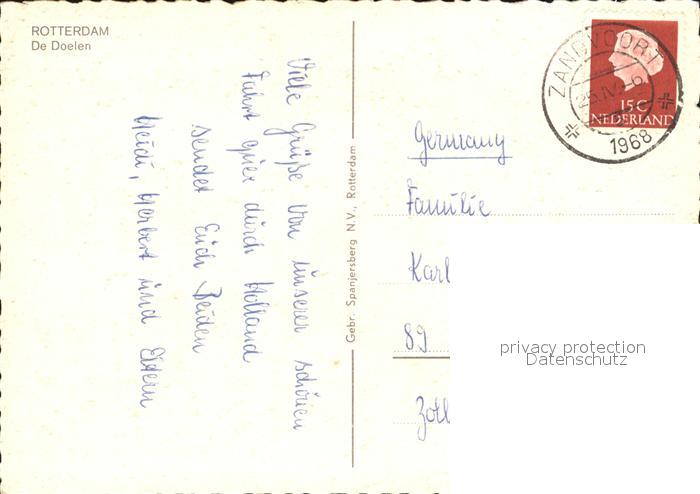 ROTTERDAM
De Doelen
Viele Grüße von unserer schönen
Fahrt quer durch Holland
sendet Euch Beiden
Heidi, Herbert und Eltern
Gebr. Spanjersberg N.V., Rotterdam
ZANDVOORT
1968
15 C
NEDERLAND
Germany
Familie
Karl
89
privacy protection
Datenschutz